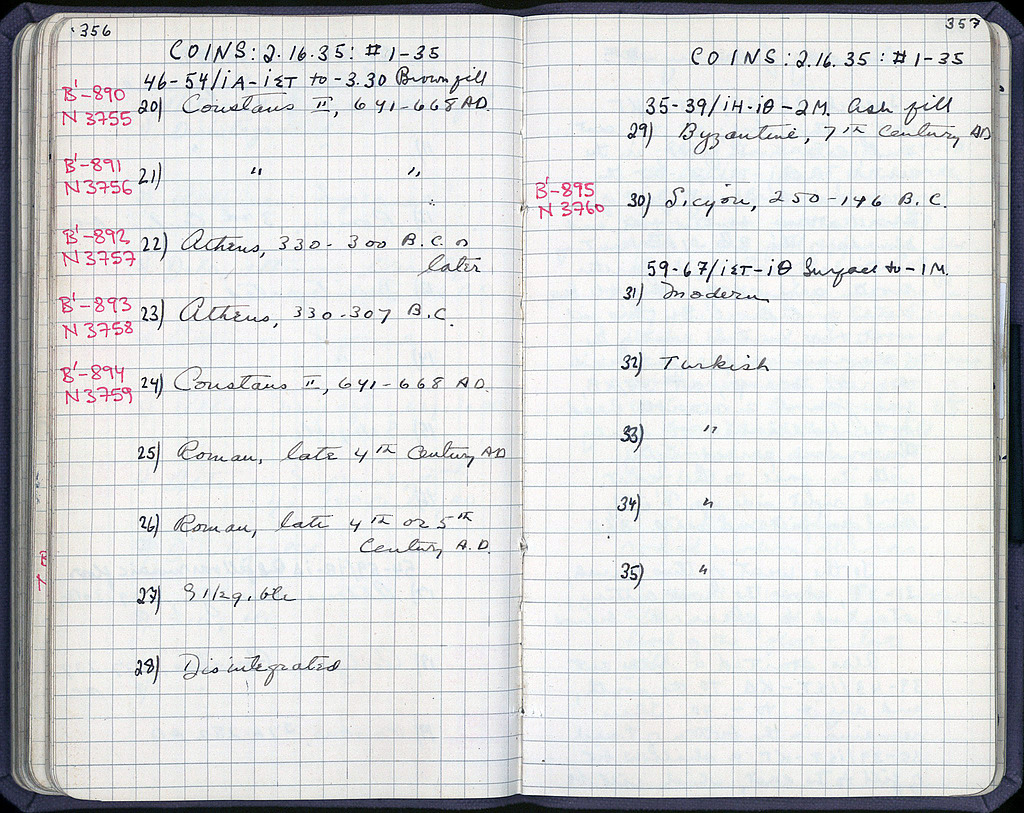 356
COINS: 2.16.35: #1-35
46-54/ιΑ-ιΣΤ to -3.30 Brown fill
B'-890
N 3755
20) Constans II, 641-668 AD.
B'-891
N 3756
21) " "
B'-892
N 3757
22) Athens, 330-300 B.C. or
later
B'-893
N 3758
23) Athens, 330-307 B.C.
B'-894
N 3759
24) Constans II, 641-668 AD.
25) Roman, late 4th Century AD
26) Roman, late 4th or 5th
Century A.D.
27) Illegible
28) Disintegrated
357
COINS: 2.16.35: #1-35
35-39/ιΗ-ιθ -2M. Ash fill
29) Byzantine, 7th Century AD
B'-895
N 3760
30) Sicyon, 250-146 B.C.
59-67/ιΣΤ-ιθ Surface to -1M.
31) Modern
32) Turkish
33) "
34) "
35) "